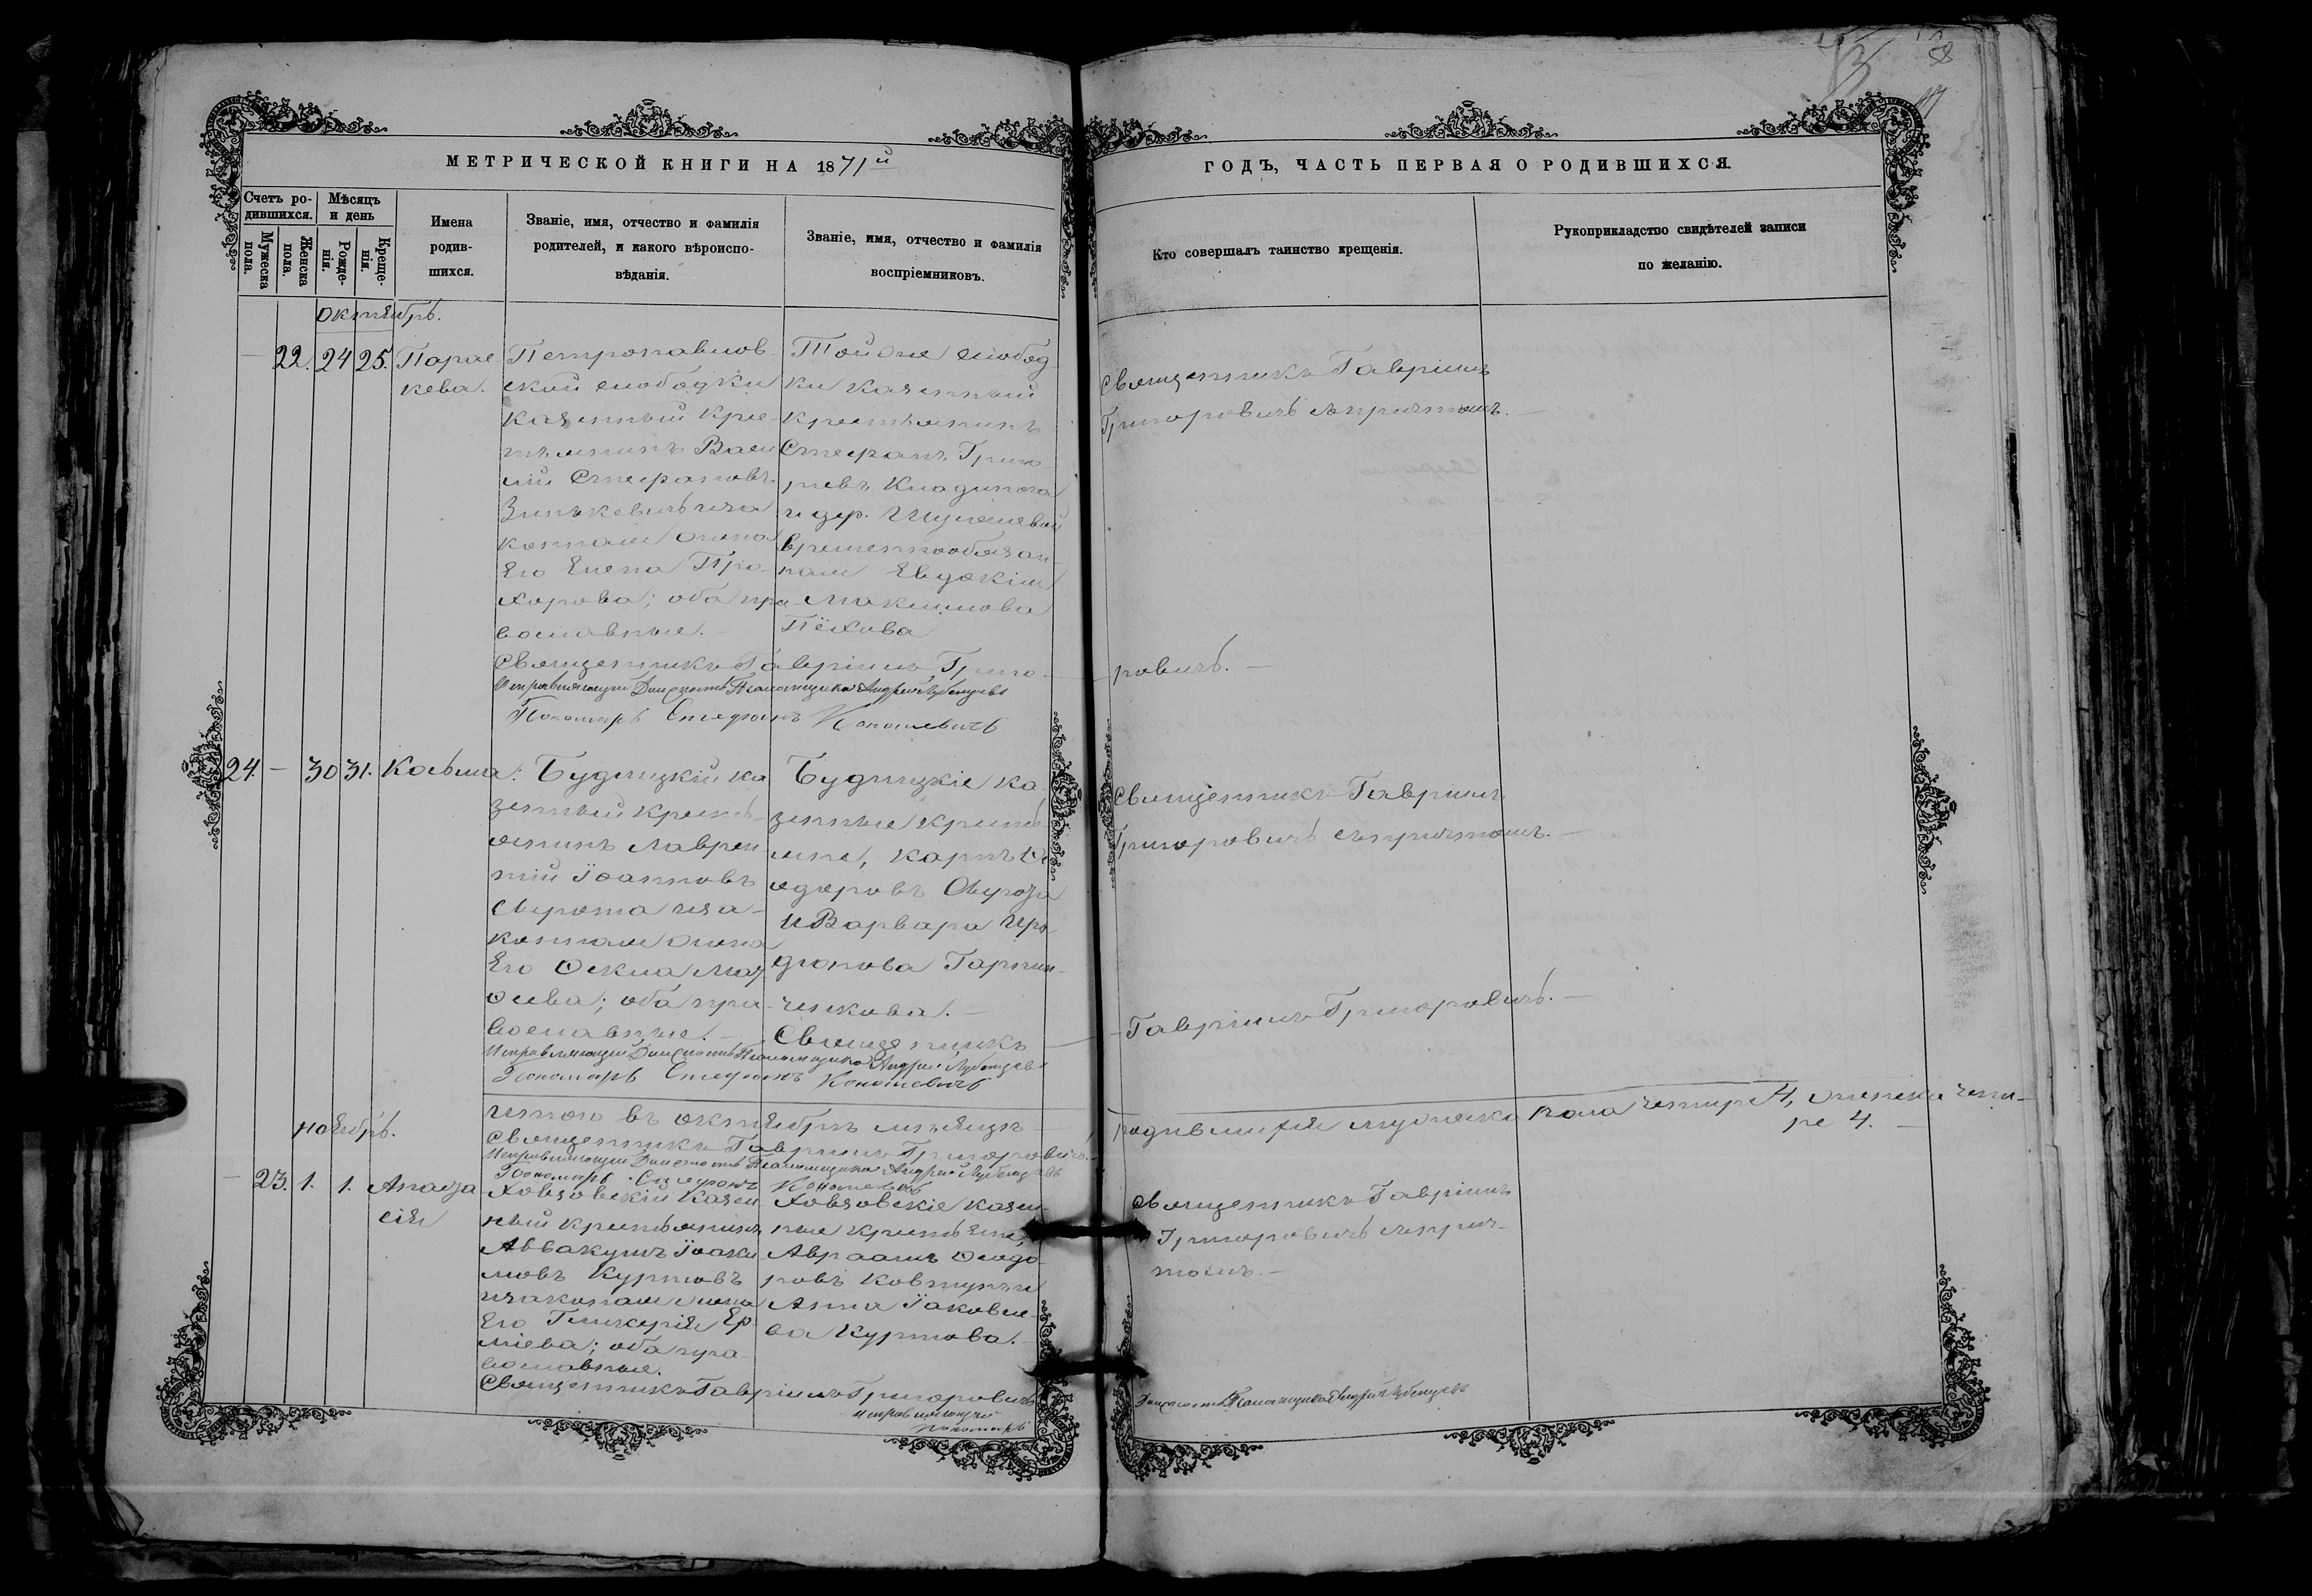 МЕТРИЧЕСКОЙ КНИГИ НА 1871й
ГОДЪ, ЧАСТЬ ПЕРВАЯ О РОДИВШИХСЯ.
Счетъ родившихся.
Мужеска пола.
Женска пола.
Мѣсяцъ и день
Рожденія.
Крещенія.
Имена
родив-
шихся.
Званіе, имя, отчество и фамилія
родителей, и какого вѣроиспо-
вѣданія.
Званіе, имя, отчество и фамилія
воспріемниковъ.
Кто совершалъ таинство крещенія.
Рукоприкладство свидѣтелей записи
по желанію.
Октябрь.
22. 24 25. Парас
кева.
Петропавлов
ской слободки
казенный кре-
стьянинъ Васи
лій Стефановъ
Зинькевичъ иза
конная жена
Его Елена Про-
хорова; оба пра
вославные.
Той же слобод
ки казенный
крестьянинъ
Стефанъ Григо-
рьевъ
и дер.
временнообязан-
ная Евдокія
Максимова
Пёхова
Священникъ Гавріилъ
Григоровичъ съ причтомъ.
Священникъ Гавріилъ Григо-
ровичъ.
Исправляющій Должность Псаломщика Андрей
Пономарь Стефанъ Кононевичъ
24. — 30 31. Косьма.
Будищкій ка
зенный кресть-
янинъ Лаврен
тій Іоанновъ
Сырота иза-
конная жена
Его Ѳекла
оба пра-
вославные.
Будищкіе ка-
зенные кресть
яне, Карпъ Ѳе
одоровъ
и Варвара Иро-
діонова
Священникъ Гавріилъ
Григоровичъ съ причтомъ.
Священникъ
Гавріилъ Григоровичъ.
Исправляющій Должность Псаломщика Андрей
Пономарь Стефанъ Кононевичъ
Итого въ октябрѣ мѣсяцѣ
родившихся мужеска пола четыре 4, женска четы-
ре 4.
Священникъ Гавріилъ Григоровичъ.
Исправляющій Должность Псаломщика Андрей
Пономарь Стефанъ Кононевичъ
Ноябрь.
— 23. 1. 1. Анаста
сія
Ховзовскій казен
ный крестьянинъ
Аввакумъ Іоаки
мовъ Куртовъ
и законная жена
Его Гликерія Ер
міева; оба пра
вославные.
Ховзовскіе казен
ные крестьяне,
Авраамъ Ѳеодо
ровъ Ковтунъ и
Анна Іаковле-
ва Куртова.
Священникъ Гавріилъ
Григоровичъ съ прич-
томъ.
Священникъ Гавріилъ Григоровичъ
Исправляющій
Должность Псаломщика Андрей
Пономарь